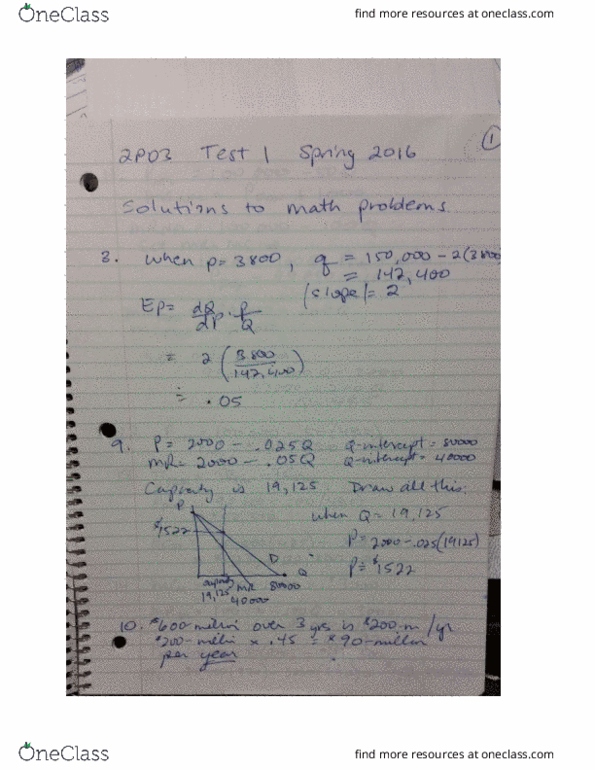 OneClass
find more resources at oneclass.com
1
2P03 Test 1 Spring 2016
Solutions to math problems.
8. when p=3800, q = 150,000 - 2(3800)
= 142,400
|slope|= 2
Ep= dQ/dP · P/Q
= 2 (3800/142,400)
≐ .05
9. P= 2000 - .025Q Q-intercept = 80000
MR= 2000 - .05Q Q-intercept = 40000
Capacity is 19,125. Draw all this:
P
$1522
when Q = 19,125
P= 2000-.025(19125)
P= $1522
D
Q
capacity MR 80000
19,125 40000
10. $600-million over 3 yrs is $200-m/yr
$200-million x .45 = $90-million
per year
OneClass
find more resources at oneclass.com